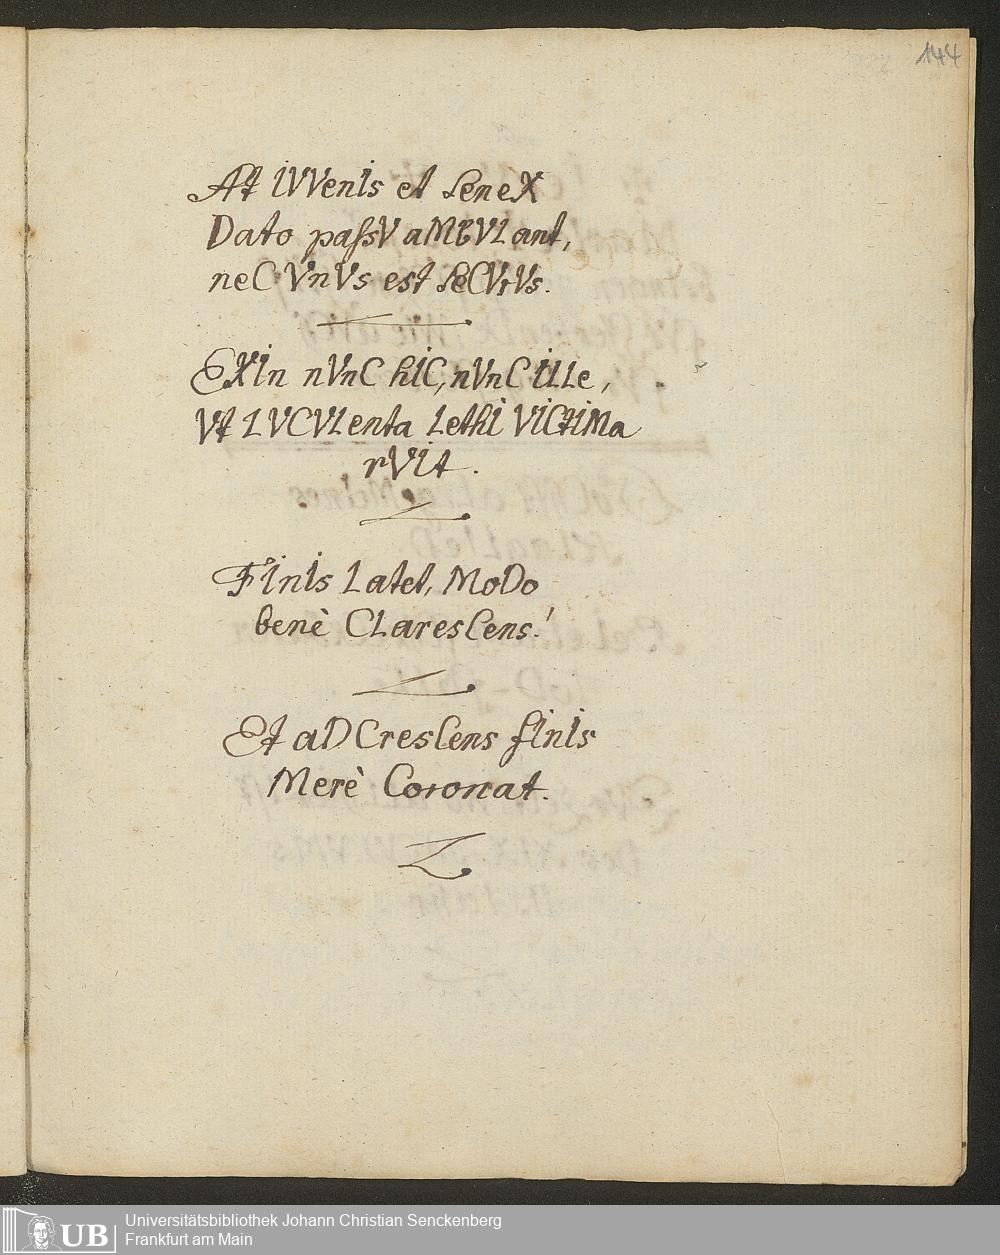 144
At IVVenIs et seneX
Dato passV aMbVLant,
neC VnVs est seCVrVs.
EXIn nVnC hIC, nVnC ILLe,
Vt LVCVLenta Lethi VICtiMa
rVIt.
FInIs Latet, MoDo
benè CLaresCens!
Et aDCresCens fInIs
Merè Coronat.
UB
Universitätsbibliothek Johann Christian Senckenberg
Frankfurt am Main